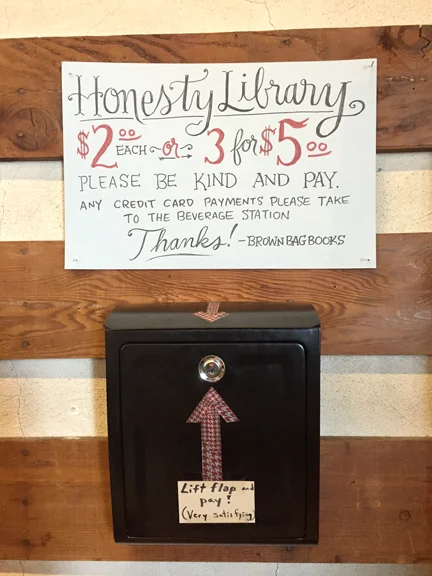 Honesty Library
$2.00 EACH ~or~ 3 for $5.00
PLEASE BE KIND AND PAY.
ANY CREDIT CARD PAYMENTS PLEASE TAKE
TO THE BEVERAGE STATION
Thanks! -BROWN BAG BOOKS
Lift flap and
pay!
(Very satisfying)